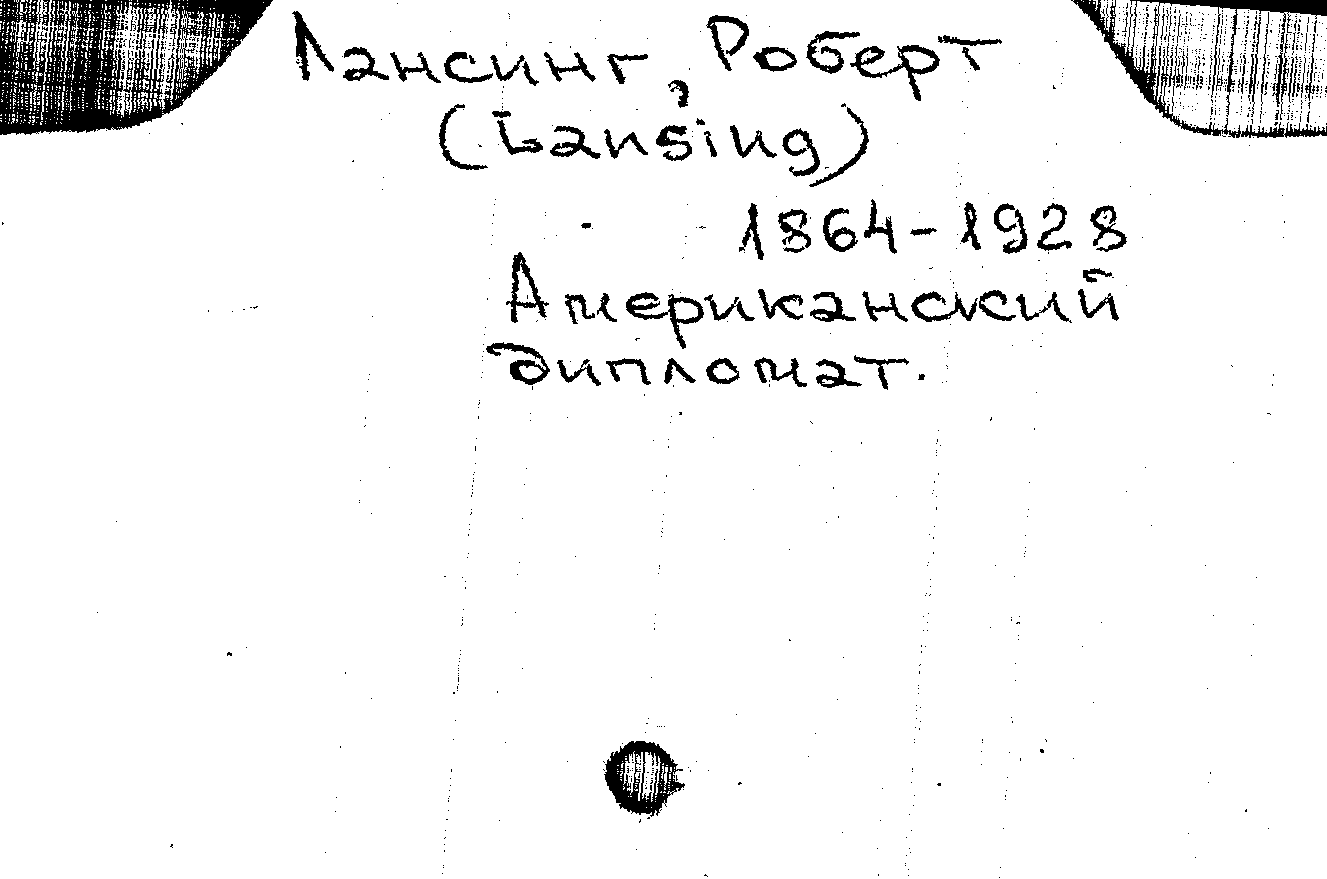 Лансинг, Роберт
(Lansing)
1864-1928
Американский
дипломат.